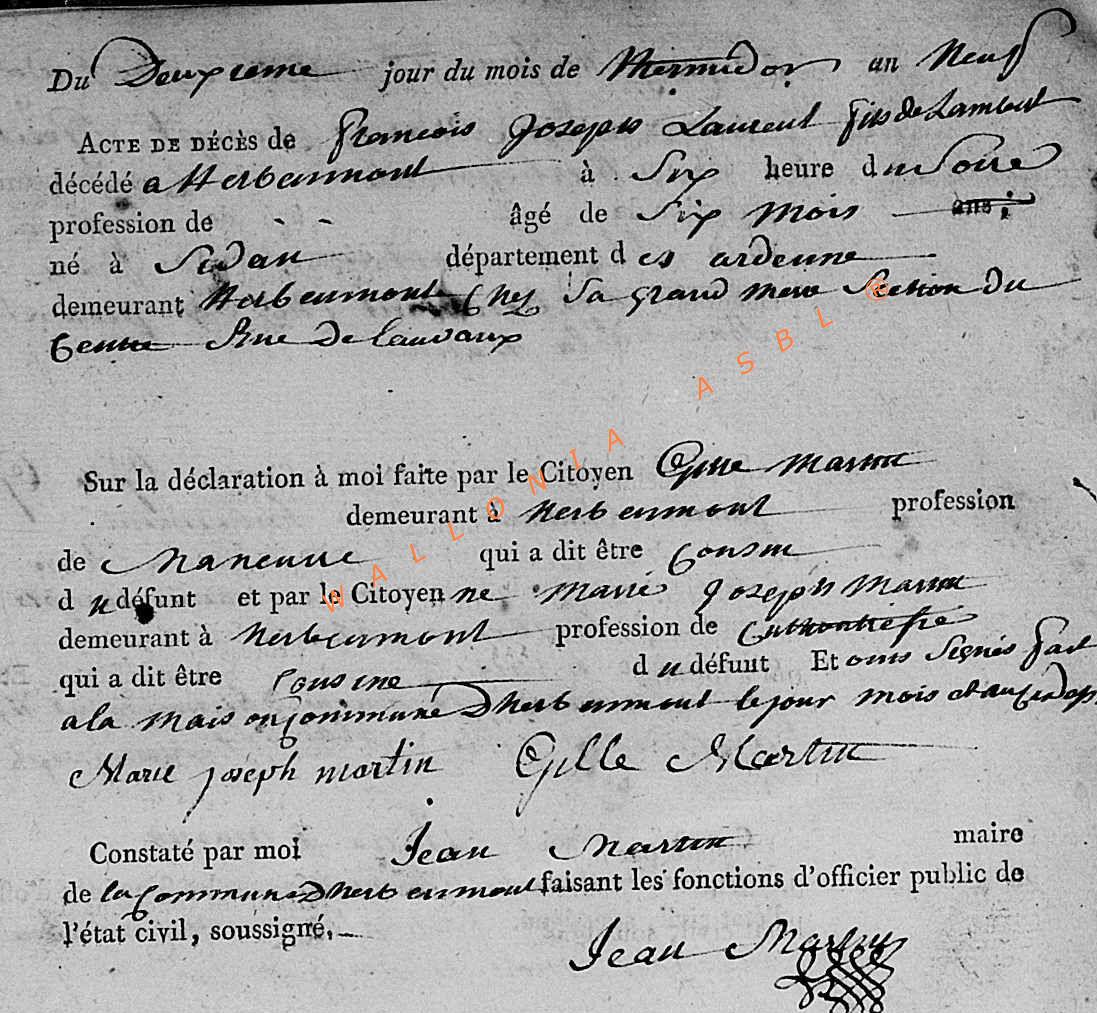 Du Deuxieme jour du mois de thermidor an Neuf
ACTE DE DÉCÈS de francois Joseph Laurent fils de Lambert
décédé a Herbeumont à Six heure du Soire
profession de âgé de Six mois ans ;
né à Sedan département des ardenne
demeurant Herbeumont Chez Sa grand mere Section Du
Centre Rue De Lauvaux
Sur la déclaration à moi faite par le Citoyen Gille Martin
demeurant à Herbeumont profession
de Maneuvre qui a dit être Cousin
du défunt et par le Citoyenne Marie Joseph Martin
demeurant à Herbeumont profession de
qui a dit être Cousine du défunt Et onts Signés fait
a la maison Commune D'herbeumont le jour mois et an
Marie joseph martin Gille Martin
Constaté par moi Jean Martin maire
de la Commune D'herbeumont faisant les fonctions d'officier public de
l'état civil, soussigné.
Jean Martin
WALLONIA ASBL ©